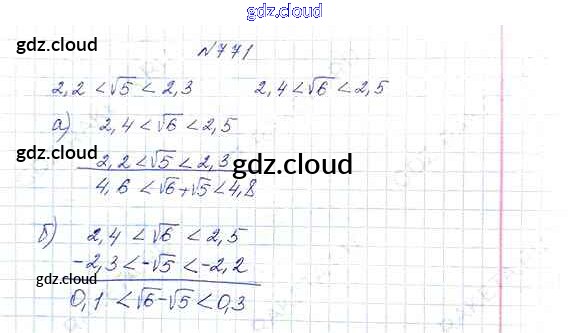 gdz.cloud
gdz.cloud
№771
2,2 < √5 < 2,3 2,4 < √6 < 2,5
а) 2,4 < √6 < 2,5
gdz.cloud
2,2 < √5 < 2,3
gdz.cloud
4,6 < √6 + √5 < 4,8
б) 2,4 < √6 < 2,5
-2,3 < -√5 < -2,2
gdz.cloud
0,1 < √6 - √5 < 0,3